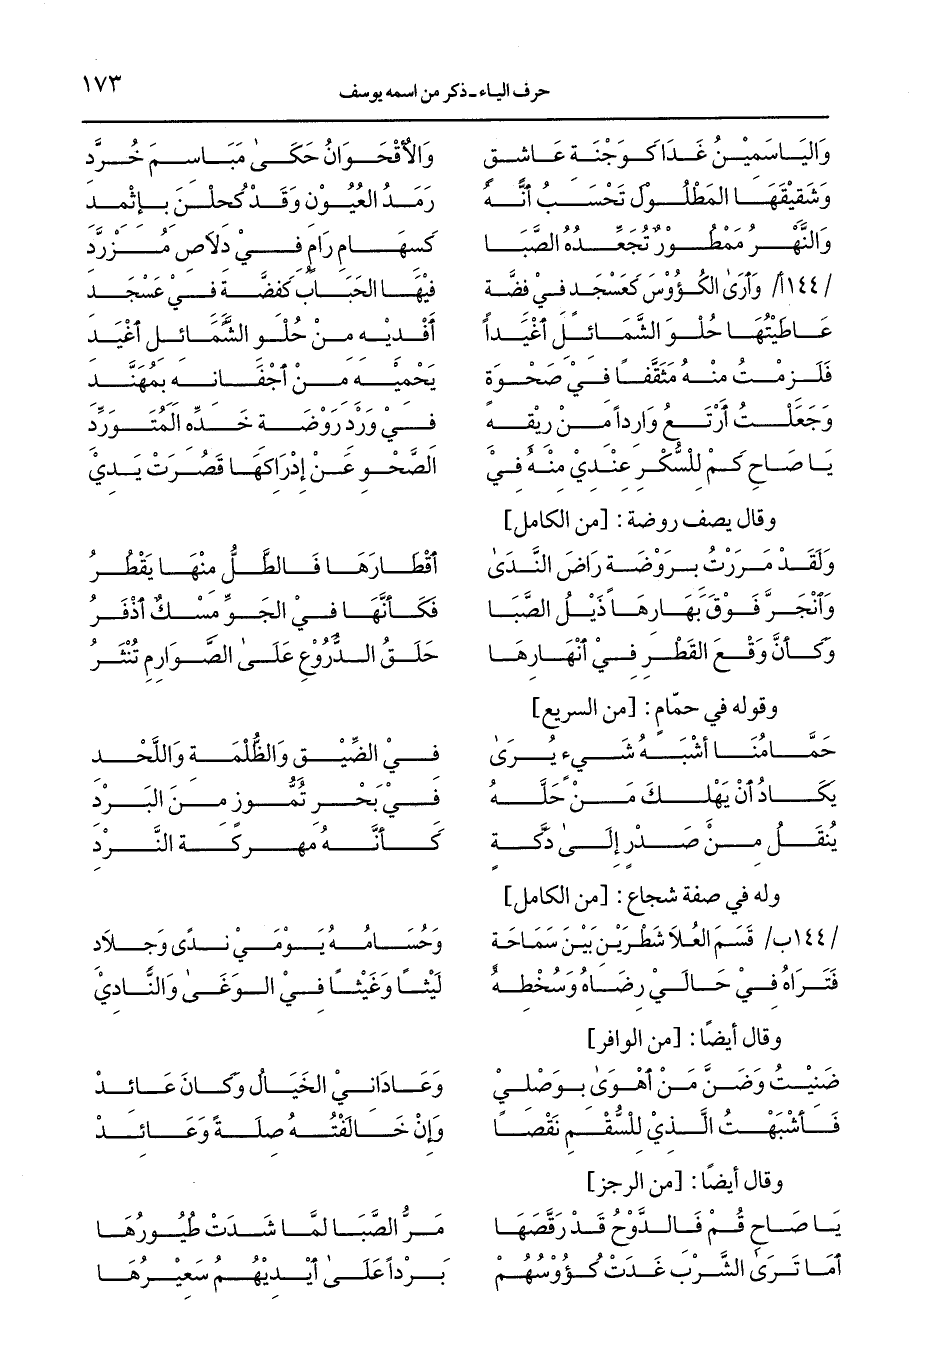 حرف الياء ـ ذكر من اسمه يوسف ١٧٣
وَاليَاسَمِيْنُ غَدَا كَوَجْنَةِ عَاشِقٍ وَالأُقْحُوَانُ حَكَىٰ مَبَاسِمَ خُرَّدِ
وَشَقِيْقُهَا المَطْلُولُ تَحْسَبُ أَنَّهُ رَمَدُ العُيُوْنِ وَقَدْ كُحِلْنَ بِإِثْمِدِ
وَالنَّهْرُ مَمْطُورٌ تُجَعِّدُهُ الصَّبَا كَسِهَامِ رَامٍ فِيْ دِلَاصٍ مُزَرَّدِ
/١٤٤أ/ وَأَرَىٰ الكُؤُوْسَ كَعَسْجَدٍ فِيْ فِضَّةٍ فِيْهَا الحَبَابُ كَفِضَّةٍ فِيْ عَسْجَدِ
عَاطَيْتُهَا حُلْوَ الشَّمَائِلِ أَغْيَداً أَفْدِيْهِ مِنْ حُلْوِ الشَّمَائِلِ أَغْيَدِ
فَلَزِمْتُ مِنْهُ مُثَقَّفاً فِيْ ضَحْوَةٍ يَحْمِيْهِ مِنْ أَجْفَانِهِ بِمُهَنَّدِ
وَجَعَلْتُ أَرْتَعُ وَارِداً مِنْ رِيْقِهِ فِيْ وِرْدِ رَوْضَةِ خَدِّهِ المُتَوَرِّدِ
يَا صَاحِ كَمْ لِلسُّكْرِ عِنْدِيْ مِنْهُ فِيْ الصَّحْوِ عَنْ إِدْرَاكِهَا قَصُرَتْ يَدِيْ
وقال يصف روضة: [من الكامل]
وَلَقَدْ مَرَرْتُ بِرَوْضَةٍ رَاضَ النَّدَىٰ أَقْطَارَهَا فَالطَّلُّ مِنْهَا يَقْطُرُ
وَأَنْجَرَّ فَوْقَ بَهَارِهَا ذَيْلُ الصَّبَا فَكَأَنَّهَا فِيْ الجَوِّ مِسْكٌ أَذْفَرُ
وَكَأَنَّ وَقْعَ القَطْرِ فِيْ أَنْهَارِهَا حَلَقُ الدُّرُوْعِ عَلَىٰ الصَّوَارِمِ تُنْثَرُ
وقوله في حمّام: [من السريع]
حَمَّامُنَا أَشْبَهُ شَيْءٍ يُرَىٰ فِيْ الضِّيْقِ وَالظُّلْمَةِ وَاللَّحْدِ
يَكَادُ أَنْ يَهْلِكَ مَنْ حَلَّهُ فِيْ بَحْرِ تَمُّوزٍ مِنَ البَرْدِ
يُنْقَلُ مِنْ صَدْرٍ إِلَىٰ دَكَّةٍ كَأَنَّهُ مُهْرَكَةُ النَّرْدِ
وله في صفة شجاع: [من الكامل]
/١٤٤ب/ قَسَمَ العُلَا شَطْرَيْنِ بَيْنَ سَمَاحَةٍ وَحُسَامُهُ يَوْمَيْ نَدًى وَجِلَادِ
فَتَرَاهُ فِيْ حَالَيْ رِضَاهُ وَسُخْطِهِ لَيْثًا وَغَيْثًا فِيْ الوَغَىٰ وَالنَّادِيْ
وقال أيضًا: [من الوافر]
ضَنِيْتُ وَضَنَّ مَنْ أَهْوَىٰ بِوَصْلِي وَعَادَانِيْ الخَيَالُ وَكَانَ عَائِدْ
فَأَشْبَهْتُ الَّذِيْ لِلسُّقْمِ نَقْصًا وَإِنْ خَالَفْتُهُ صِلَةً وَعَائِدْ
وقال أيضًا: [من الرجز]
يَا صَاحِ قُمْ فَالدَّوْحُ قَدْ رَقَّصَهَا مَرُّ الصَّبَا لَمَّا شَدَتْ طُيُورُهَا
أَمَا تَرَىٰ الشَّرْبَ غَدَتْ كُؤُوْسُهُمْ بَرْداً عَلَىٰ أَيْدِيْهِمُ سَعِيْرُهَا